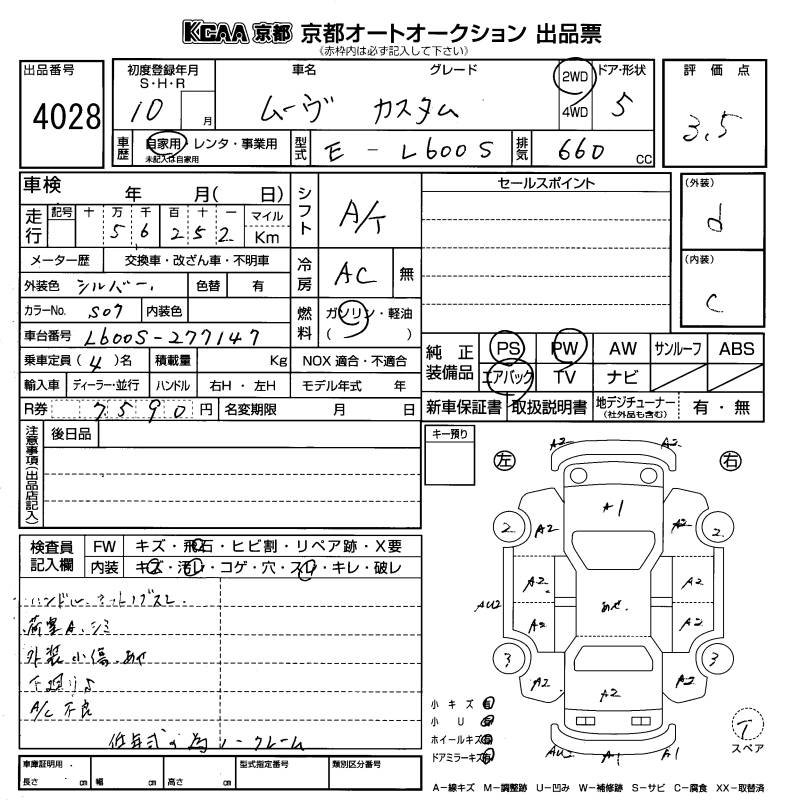 KCAA 京都 京都オートオークション 出品票
《赤枠内は必ず記入して下さい》
出品番号
4028
初度登録年月
S・H・R
10 月
車名 グレード
ムーヴ カスタム
2WD
4WD
ドア・形状
5
評価点
3.5
車歴 自家用・レンタ・事業用
未記入は自家用
型式 E-L600S
排気 660 CC
車検 年 月( 日)
走行 記号 十 万 千 百 十 一 マイル
5 6 2 5 2 Km
メーター歴 交換車・改ざん車・不明車
外装色 シルバー. 色替 有
カラーNo. S07 内装色
車台番号 L600S-277147
乗車定員 (4)名 積載量 Kg
輸入車 ディーラー・並行 ハンドル 右H・左H
R券 7590円 名変期限 月 日
シフト A/T
冷房 AC 無
燃料 ガソリン・軽油
( )
NOX 適合・不適合
モデル年式 年
セールスポイント
(外装)
d
(内装)
C
純正装備品 PS PW AW サンルーフ ABS
エアバック TV ナビ
新車保証書 取扱説明書 地デジチューナー
(社外品も含む) 有・無
注意事項(出品店記入)
後日品
キー預り
検査員記入欄
FW キズ・飛石・ヒビ割・リペア跡・X要
内装 キズ・汚レ・コゲ・穴・スレ・キレ・破レ
荷室A.シミ
外装小傷.あせ
下廻りS
A/C不良
低年式の為ノークレーム
左 右
A2 A2
A1
2 A2 A2 2
A2 A2
AU2 あせ.
A2 A2
3 A2 A2 A2 3
AU2 A1 A1
小キズ 有
小U 有
ホイールキズ 有
ドアミラーキズ 有
T
スペア
車庫証明用 長さ cm 幅 cm 高さ cm
型式指定番号 類別区分番号
A-線キズ M-調整跡 U-凹み W-補修跡 S-サビ C-腐食 XX-取替済